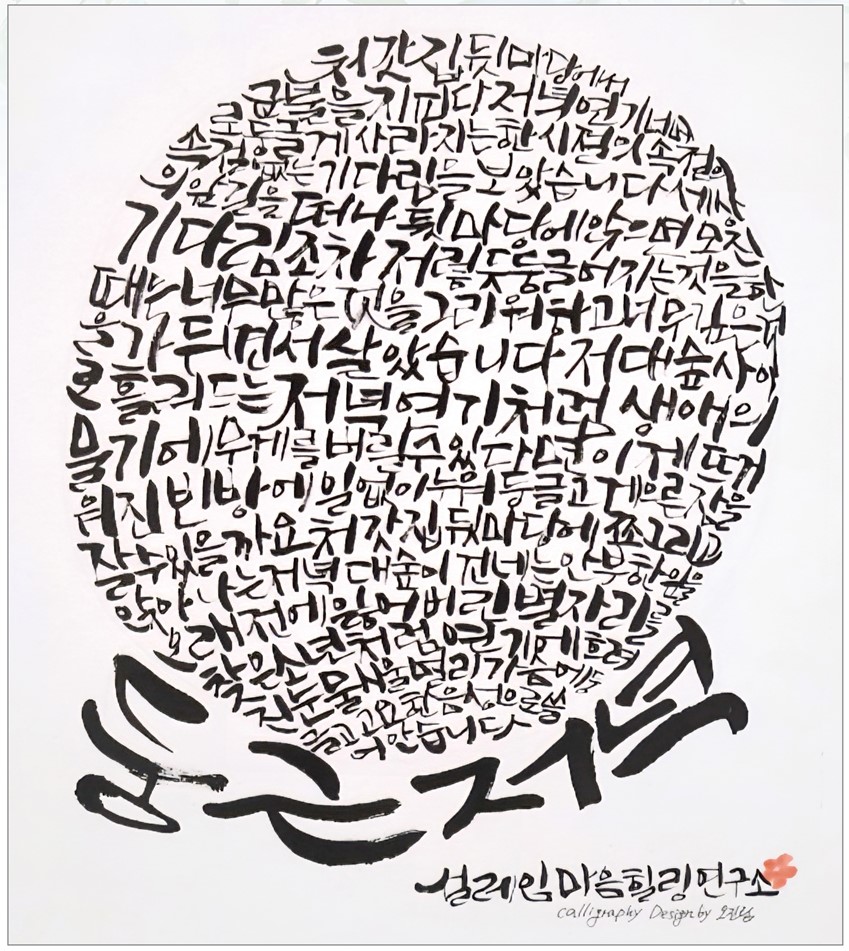 처갓집 뒷마당에서
군불을 지피다 저녁연기너머
로 둥글게 사라지는 한 시절의 속절
속절없는 기다림들 보았습니다 세사
의 먼 길을 떠나 뒷마당에 앉으면 모진
기다림조차 저리 둥글어지는 것을 한
때는 너무 많은 것을 그리워하고 너무 깊은
을 가두면서 살았습니다 저 대숲 사이
로 흘러드는 저녁연기처럼 생애의
물기에 무게를 버릴 수 있다면 이제 뜨거
워진 빈방에 일없이 누워 둥글고 게으른 잠을
잘 수 있을까요 처갓집 뒷마당에 쪼그리고
앉아 나는 저녁 대숲이 건네는 안부 하
오래전에 잃어버린 별자리를
찾은 소년처럼 연기에 흐려
진 눈물 서울 머리 가슴에
들고 고요한 음성으로
어안습니다
둥근 저녁
설레임마음힐링연구소
calligraphy Design by 오진남